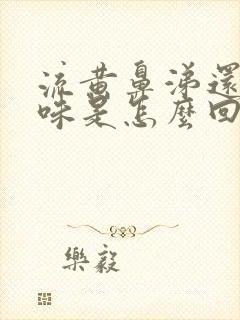 流黄鼻涕還
味是怎麼回
樂毅